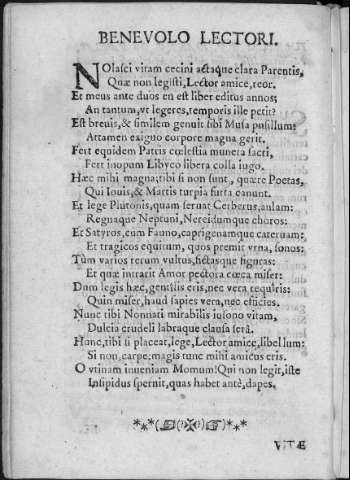 BENEVOLO LECTORI.
NOlasci vitam cecini actaque clara Parentis,
Quæ non legisti, Lector amice, reor.
Et meus ante duos en est liber editus annos;
An tantum, vt legeres, temporis ille petit?
Est breuis, & similem genuit sibi Musa pusillum:
Attamen exiguo corpore magna gerit.
Fert equidem Patris cœlestia munera sacri,
Fert inopum Libyco libera colla iugo.
Hæc mihi magna; tibi si non sunt, quære Poetas,
Qui Iouis, & Martis turpia furta canunt.
Et lege Plutonis, quam seruat Cerberus, aulam:
Regnaque Neptuni, Nereidumque choros:
Et Satyros, cum Fauno, caprigenamque cateruam:
Et tragicos equitum, quos premit vrna, sonos:
Tùm varios rerum vultus, fictasque figuras:
Et quæ intrarit Amor pectora cœca miser:
Dum legis hæc, gentilis eris, nec vera requiris:
Quin miser, haud sapies vera, nec efficies.
Nunc tibi Nonnati mirabilis insono vitam,
Dulcia crudeli labraque clausa serâ.
Hunc, tibi si placeat, lege, Lector amice, libellum:
Si non, carpe: magis tunc mihi amicus eris.
O vtinam inueniam Momum! Qui non legit, iste
Insipidus spernit, quas habet antè, dapes.
VITÆ